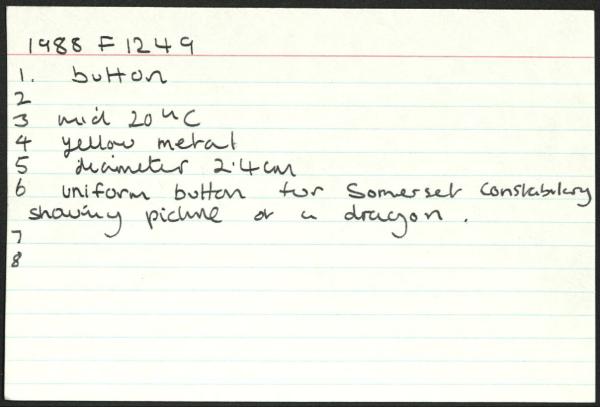 1988 F 1249
1. button
2
3 mid 20th C
4 yellow metal
5 diameter 2.4cm
6 uniform button for Somerset Constabulary
showing picture of a dragon.
7
8